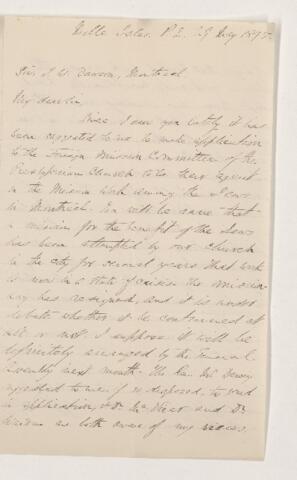 Belle Isles, P.Q. 29 July 1895.
Sir J. W. Dawson, Montreal
My dear Sir,
Since I saw you lately it has
been suggested to me to make application
to the Foreign Mission Committee of the
Presbyterian Church to be their agent
in the Mission work among the Jews
in Montreal. You will be aware that
a mission for the benefit of the Jews
has been attempted by our Church
in the city for several years that work
is now in a state of crisis the mission-
ary has resigned, and it is under
debate whether it be continued at
all or not. I suppose it will be
definitely arranged by the
next month. The Rev. Mr. Dewey
me if so disposed, to send
in application, & Dr. Mac Vicar and Dr
are both aware of my